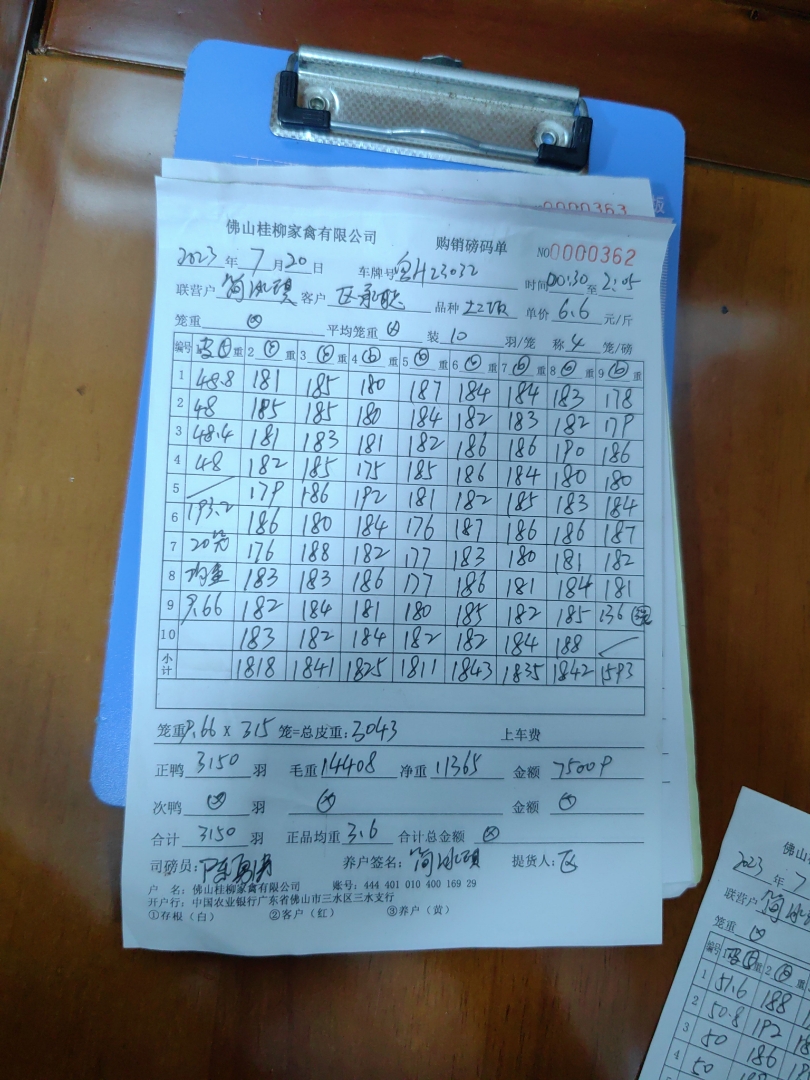 0000363
佛山桂柳家禽有限公司 购销磅码单 NO0000362
2023年7月20日 车牌号 H23032 时间00:30至2:05
联营户 简冰琪 客户 区 品种 单价 6.6 元/斤
笼重 平均笼重 装 10 羽/笼 称 4 笼/磅
编号 重 2 重 3 重 4 重 5 重 6 重 7 重 8 重 9 重
1 48.8 181 185 180 187 184 184 183 178
2 48 185 185 180 184 182 183 182 179
3 48.4 181 183 181 182 186 186 190 186
4 48 182 185 175 185 186 184 180 180
5 179 186 192 181 182 185 183 184
6 193.2 186 180 184 176 187 186 186 187
7 20笼 176 188 182 177 183 180 181 182
8 均重 183 183 186 177 186 181 184 181
9 9.66 182 184 181 180 185 182 185 136
10 183 182 184 182 182 184 188
小计 1818 1841 1825 1811 1843 1835 1842 1593
笼重9.66 X 315 笼=总皮重:3043 上车费
正鸭 3150 羽 毛重14408 净重 11365 金额 75009
次鸭 羽 金额
合计 3150 羽 正品均重 3.6 合计总金额
司磅员: 陈 养户签名: 简冰琪 提货人: 区
户 名: 佛山桂柳家禽有限公司 账号: 444 401 010 400 169 29
开户行: 中国农业银行广东省佛山市三水区三水支行
①存根(白) ②客户(红) ③养户(黄)
佛山
2023 年 7
联营户 简
笼重
编号 重 2 重
1 51.6 188
2 50.8 192
3 50 186
4 50